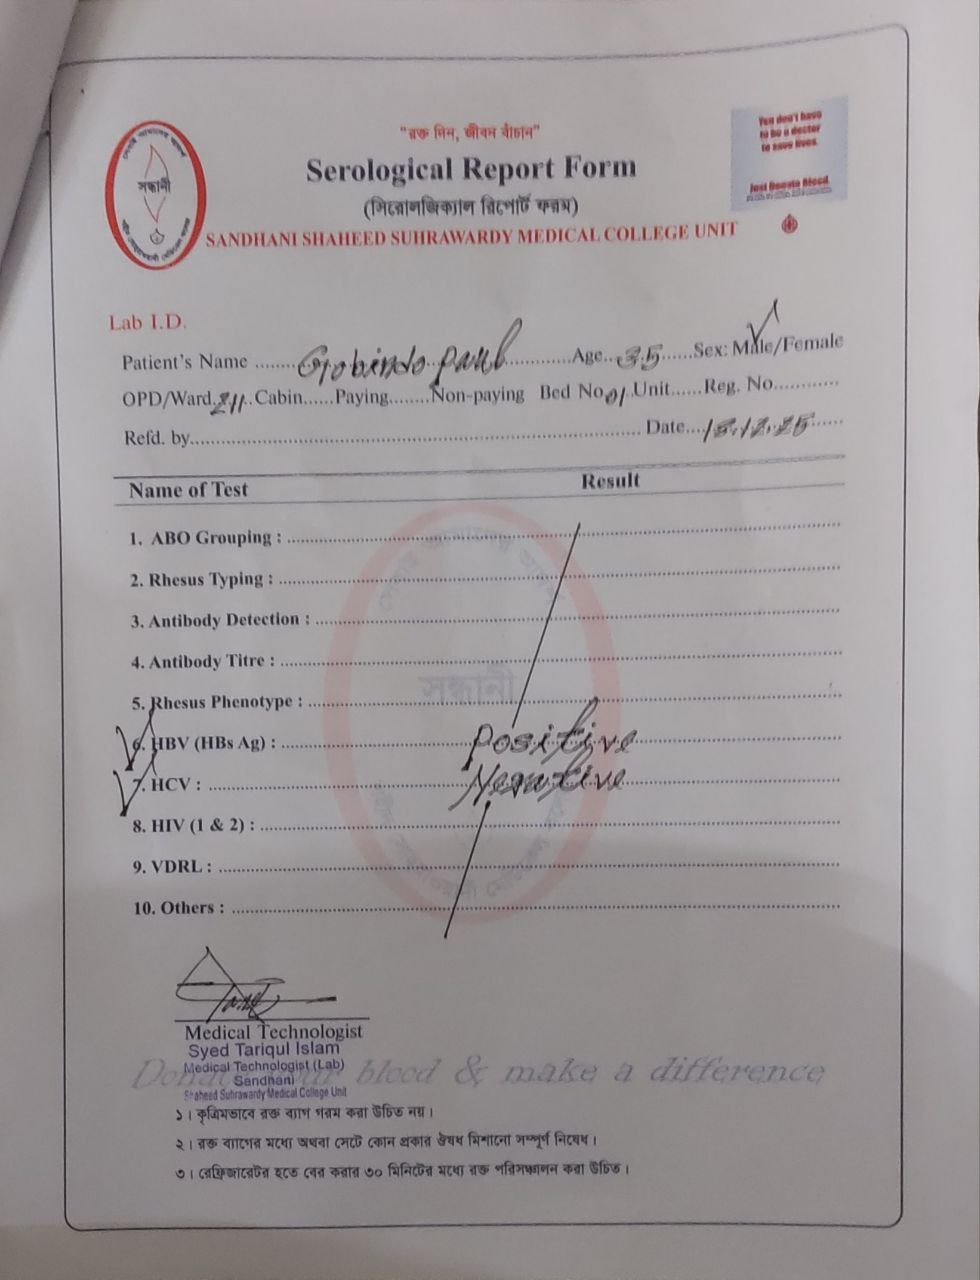 "রক্ত দিন, জীবন বাঁচান"
Serological Report Form
(সিরোলজিক্যাল রিপোর্ট ফরম)
SANDHANI SHAHEED SUHRAWARDY MEDICAL COLLEGE UNIT
সন্ধানী
You don't have
to be a doctor
to save lives.
Just Donate Blood
Lab I.D.
Patient's Name ......Gobindo paul.............Age...35......Sex: Male/Female
OPD/Ward.211.Cabin......Paying........Non-paying Bed No.01.Unit......Reg. No............
Refd. by.................................................. Date....15.12.25......
Name of Test Result
1. ABO Grouping :
2. Rhesus Typing :
3. Antibody Detection :
4. Antibody Titre :
5. Rhesus Phenotype :
6. HBV (HBs Ag) : Positive
7. HCV : Negative
8. HIV (1 & 2) :
9. VDRL :
10. Others :
সন্ধানী
Medical Technologist
Syed Tariqul Islam
Medical Technologist (Lab)
Sandhani
Shaheed Suhrawardy Medical College Unit
Donate blood & make a difference
১। কৃত্রিমভাবে রক্ত ব্যাগ গরম করা উচিত নয়।
২। রক্ত ব্যাগের মধ্যে অথবা সেটে কোন প্রকার ঔষধ মিশানো সম্পূর্ণ নিষেধ।
৩। রেফ্রিজারেটর হতে বের করার ৩০ মিনিটের মধ্যে রক্ত পরিসঞ্চালন করা উচিত।